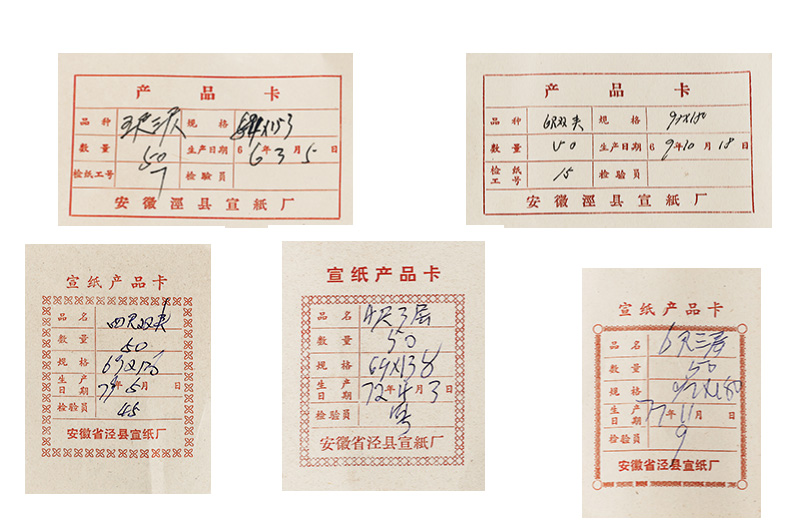 产 品 卡
品 种 五尺三层 规 格 84X153
数 量 50 生产日期 6 6 年 3 月 5 日
检纸工号 7 检验员
安徽泾县宣紙厂
产 品 卡
品 种 6尺双夹 规 格 97X180
数 量 50 生产日期 6 9 年 10 月 18 日
检纸工号 15 检验员
安徽泾县宣紙厂
宣纸产品卡
品 名 四尺双夹
数 量 50
规 格 69X138
生产日期 79 年 5 月 日
检验员 45
安徽省泾县宣纸厂
宣纸产品卡
品 名 4尺3层
数 量 50
规 格 69X138
生产日期 72 年 月 3 日
检验员
安徽省泾县宣紙厂
宣纸产品卡
品 名 6尺三层
数 量 50
规 格 97X180
生产日期 77 年 11 月 日
检验员 9
安徽省泾县宣纸厂